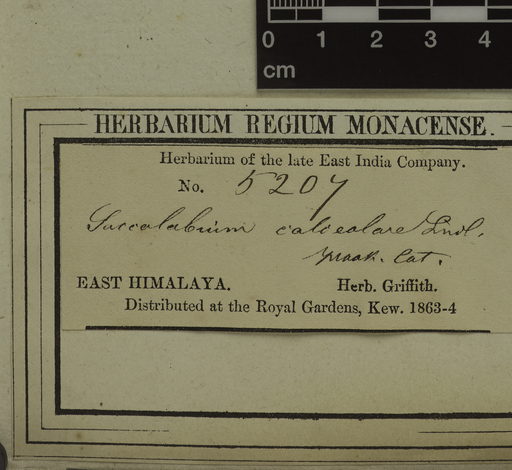 0 1 2 3 4
cm
HERBARIUM REGIUM MONACENSE.
Herbarium of the late East India Company.
No. 5207
Saccolabium calceolare Lindl.
Cat.
EAST HIMALAYA. Herb. Griffith.
Distributed at the Royal Gardens, Kew. 1863-4